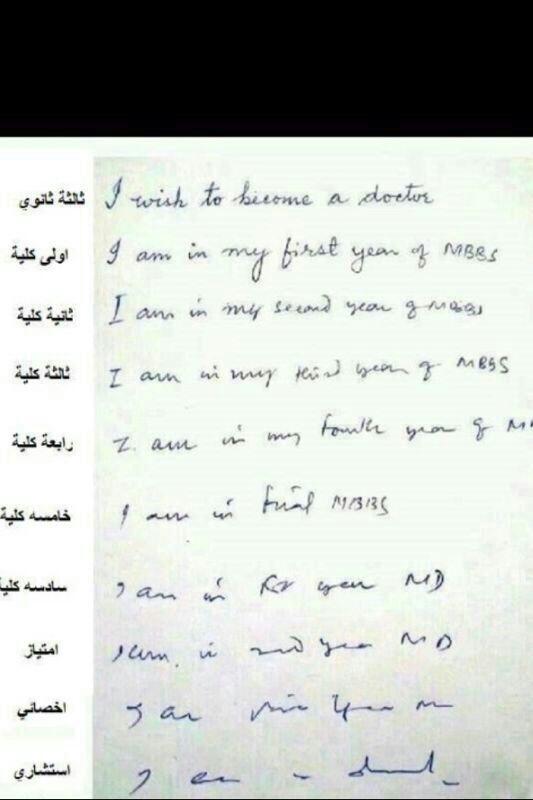 ثالثة ثانوي I wish to become a doctor
اولى كلية I am in my first year of MBBS
ثانية كلية I am in my second year of MBBS
ثالثة كلية I am in my third year of MBBS
رابعة كلية I am in my fourth year of
خامسه كلية I am in final MBBS
سادسه كلية I am in year MD
امتياز I am in 2nd year MD
اخصائي I am
استشاري I am